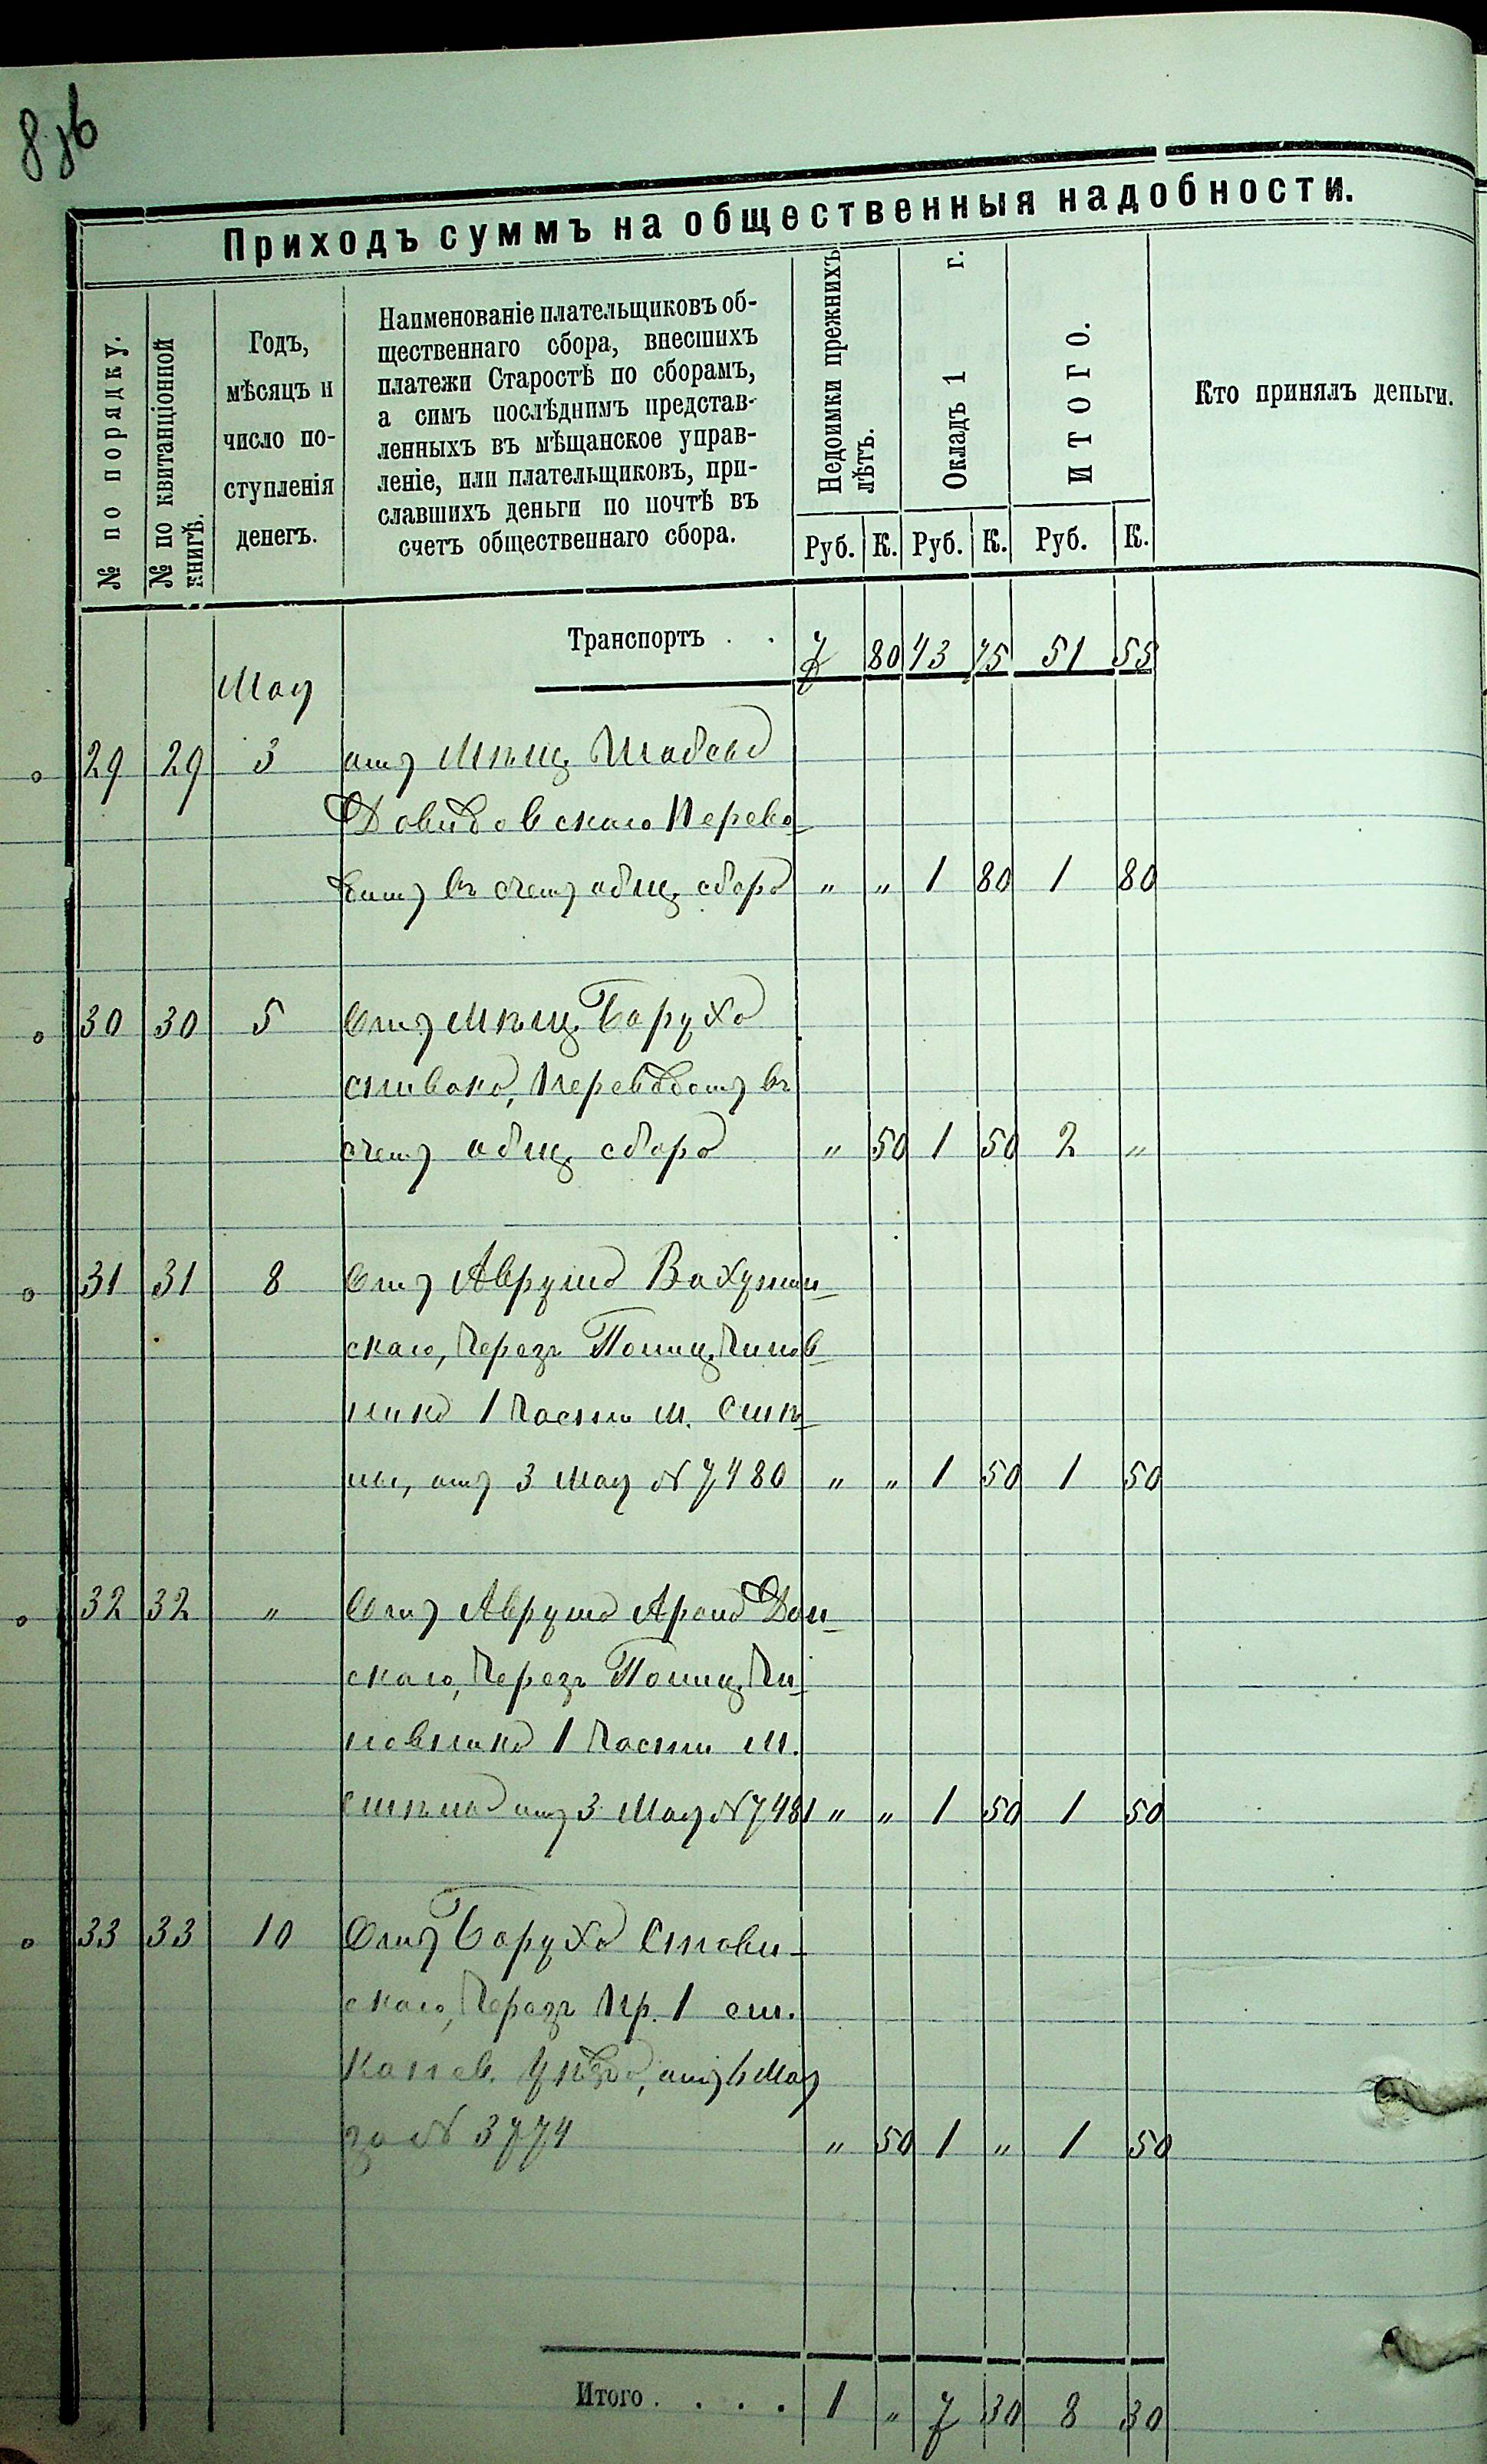 8 об
Приходъ суммъ на общественныя надобности.
№ по порядку.
№ по квитанціонной книгѣ.
Годъ,
мѣсяцъ и
число по-
ступленія
денегъ.
Наименованіе плательщиковъ об-
щественнаго сбора, внесшихъ
платежи Старостѣ по сборамъ,
а симъ послѣднимъ представ-
ленныхъ въ мѣщанское управ-
леніе, или плательщиковъ, при-
славшихъ деньги по почтѣ въ
счетъ общественнаго сбора.
Недоимки прежнихъ лѣтъ.
Окладъ 1 г.
ИТОГО.
Кто принялъ деньги.
Руб. К. Руб. К. Руб. К.
Транспортъ . . 7 80 43 75 51 55
Мая
29 29 3 отъ Мѣщ.
Довидовскаго перево
въ счетъ общ. сбора „ „ 1 80 1 80
30 30 5 Отъ Мѣщ. Боруха
Спивака, переводомъ въ
счетъ общ. сбора „ 50 1 50 2 „
31 31 8 Отъ Аврума
скаго, черезъ Полиц. чинов
ника 1 части м. Смѣ
лы, отъ 3 Мая № 7480 „ „ 1 50 1 50
32 32 „ Отъ Аврума Арона Дон
скаго, черезъ Полиц. чи
новника 1 части м.
Смѣла отъ 3 Мая № 7481 „ „ 1 50 1 50
33 33 10 Отъ Боруха Стави-
скаго, черезъ Пр. 1 ст.
Канев. уѣзда, отъ 6 Мая
за № 3774 „ 50 1 „ 1 50
Итого . . . . 1 „ 7 30 8 30